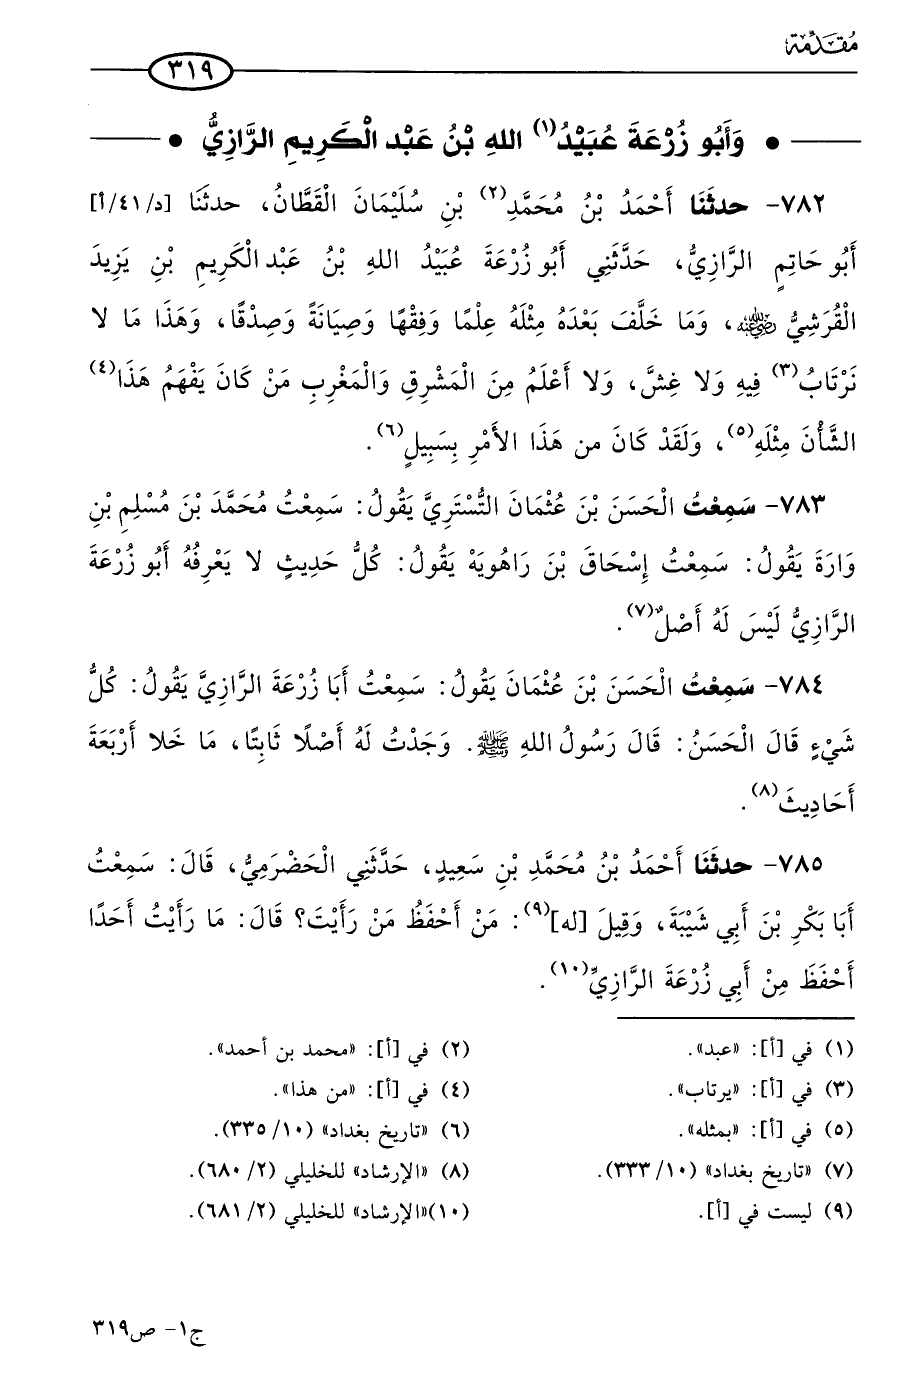 مُقَدِّمَة
٣١٩
• وَأَبُو زُرْعَةَ عُبَيْدُ(١) اللهِ بْنُ عَبْد الْكَرِيمِ الرَّازِيُّ •
٧٨٢- حدثَنَا أَحْمَدُ بْنُ مُحَمَّدِ(٢) بْنِ سُلَيْمَانَ الْقَطَّانُ، حدثَنَا [د/٤١/أ]
أَبُو حَاتِمٍ الرَّازِيُّ، حَدَّثَنِي أَبُو زُرْعَةَ عُبَيْدُ اللهِ بْنُ عَبْد الْكَرِيمِ بْنِ يَزِيدَ
الْقُرَشِيُّ رضي الله عنه، وَمَا خَلَّفَ بَعْدَهُ مِثْلَهُ عِلْمًا وَفِقْهًا وَصِيَانَةً وَصِدْقًا، وَهَذَا مَا لا
نَرْتَابُ(٣) فِيهِ وَلا غِشَّ، وَلا أَعْلَمُ مِنَ الْمَشْرِقِ وَالْمَغْرِبِ مَنْ كَانَ يَفْهَمُ هَذَا(٤)
الشَّأْنَ مِثْلَهِ(٥)، وَلَقَدْ كَانَ من هَذَا الأَمْرِ بِسَبِيلٍ(٦).
٧٨٣- سَمِعْتُ الْحَسَنَ بْنَ عُثْمَانَ التُّسْتَرِيَّ يَقُولُ: سَمِعْتُ مُحَمَّدَ بْنَ مُسْلِمِ بْنِ
وَارَةَ يَقُولُ: سَمِعْتُ إِسْحَاقَ بْنَ رَاهُويَهْ يَقُولُ: كُلُّ حَدِيثٍ لا يَعْرِفُهُ أَبُو زُرْعَةَ
الرَّازِيُّ لَيْسَ لَهُ أَصْلٌ(٧).
٧٨٤- سَمِعْتُ الْحَسَنَ بْنَ عُثْمَانَ يَقُولُ: سَمِعْتُ أَبَا زُرْعَةَ الرَّازِيَّ يَقُولُ: كُلُّ
شَيْءٍ قَالَ الْحَسَنُ: قَالَ رَسُولُ اللهِ ﷺ. وَجَدْتُ لَهُ أَصْلًا ثَابِتًا، مَا خَلا أَرْبَعَةَ
أَحَادِيثَ(٨).
٧٨٥- حدثَنَا أَحْمَدُ بْنُ مُحَمَّدِ بْنِ سَعِيدٍ، حَدَّثَنِي الْحَضْرَمِيُّ، قَالَ: سَمِعْتُ
أَبَا بَكْرِ بْنَ أَبِي شَيْبَةَ، وَقِيلَ [له](٩): مَنْ أَحْفَظُ مَنْ رَأَيْتَ؟ قَالَ: مَا رَأَيْتُ أَحَدًا
أَحْفَظَ مِنْ أَبِي زُرْعَةَ الرَّازِيِّ(١٠).
(١) في [أ]: «عبد».
(٢) في [أ]: «محمد بن أحمد».
(٣) في [أ]: «يرتاب».
(٤) في [أ]: «من هذا».
(٥) في [أ]: «بمثله».
(٦) «تاريخ بغداد» (١٠/ ٣٣٥).
(٧) «تاريخ بغداد» (١٠/ ٣٣٣).
(٨) «الإرشاد» للخليلي (٢/ ٦٨٠).
(٩) ليست في [أ].
(١٠)«الإرشاد» للخليلي (٢/ ٦٨١).
ج١- ص٣١٩